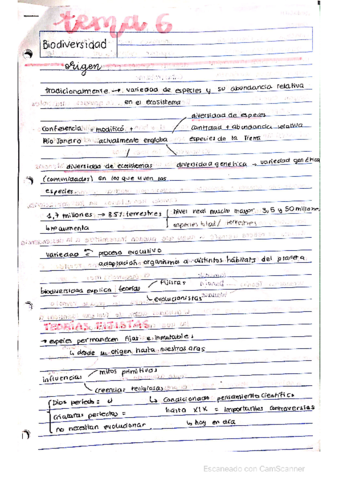 tema 6
Biodiversidad
origen
tradicionalmente → variedad de especies y su abundancia relativa
en el ecosistema
diversidad de especies
conferencia → modificó + cantidad + abundancia relativa
Río Janero actualmente engloba especies de la Tierra
diversidad de ecosistemas diversidad genética → variedad genética
(comunidades) en los que viven las
especies
1,7 millones → 85% terrestres Nivel real mucho mayor 3,5 y 50 millones
↳ aumenta
variedad = proceso evolutivo
adaptación organismo a distintos hábitats del planeta
biodiversidad explica teorías fijistas
evolucionistas
TEORÍAS FIJISTAS
→ especies permanecen fijas e inmutables
↳ desde su origen hasta nuestros días
influencias mitos primitivos
creencias religiosas
Dios perfecto = ↳ condicionado pensamiento científico
criaturas perfectas = hasta XIX = importantes controversias
no necesitan evolucionar ↳ hoy en día
Escaneado con CamScanner